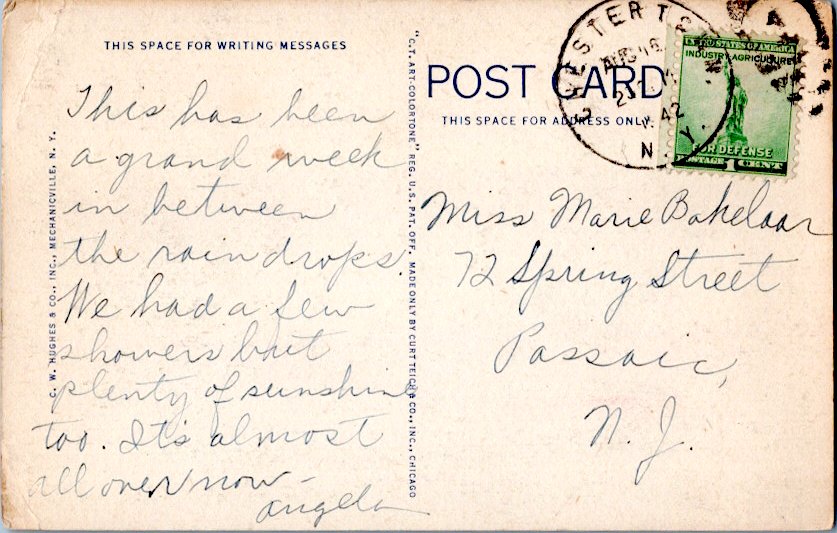 THIS SPACE FOR WRITING MESSAGES
This has been
a grand week
in between
the rain drops.
We had a few
showers but
plenty of sunshine
too. It's almost
all over now –
Angela
C. W. HUGHES & CO., INC., MECHANICVILLE, N. Y.
"C.T. ART-COLORTONE" REG. U.S. PAT. OFF. MADE ONLY BY CURT TEICH & CO., INC., CHICAGO
POST CARD
THIS SPACE FOR ADDRESS ONLY
Miss Marie Bakelaar
72 Spring Street
Passaic,
N. J.
AUG 16
42
N. Y.
UNITED STATES OF AMERICA
INDUSTRY-AGRICULTURE
FOR DEFENSE
POSTAGE 1 CENT